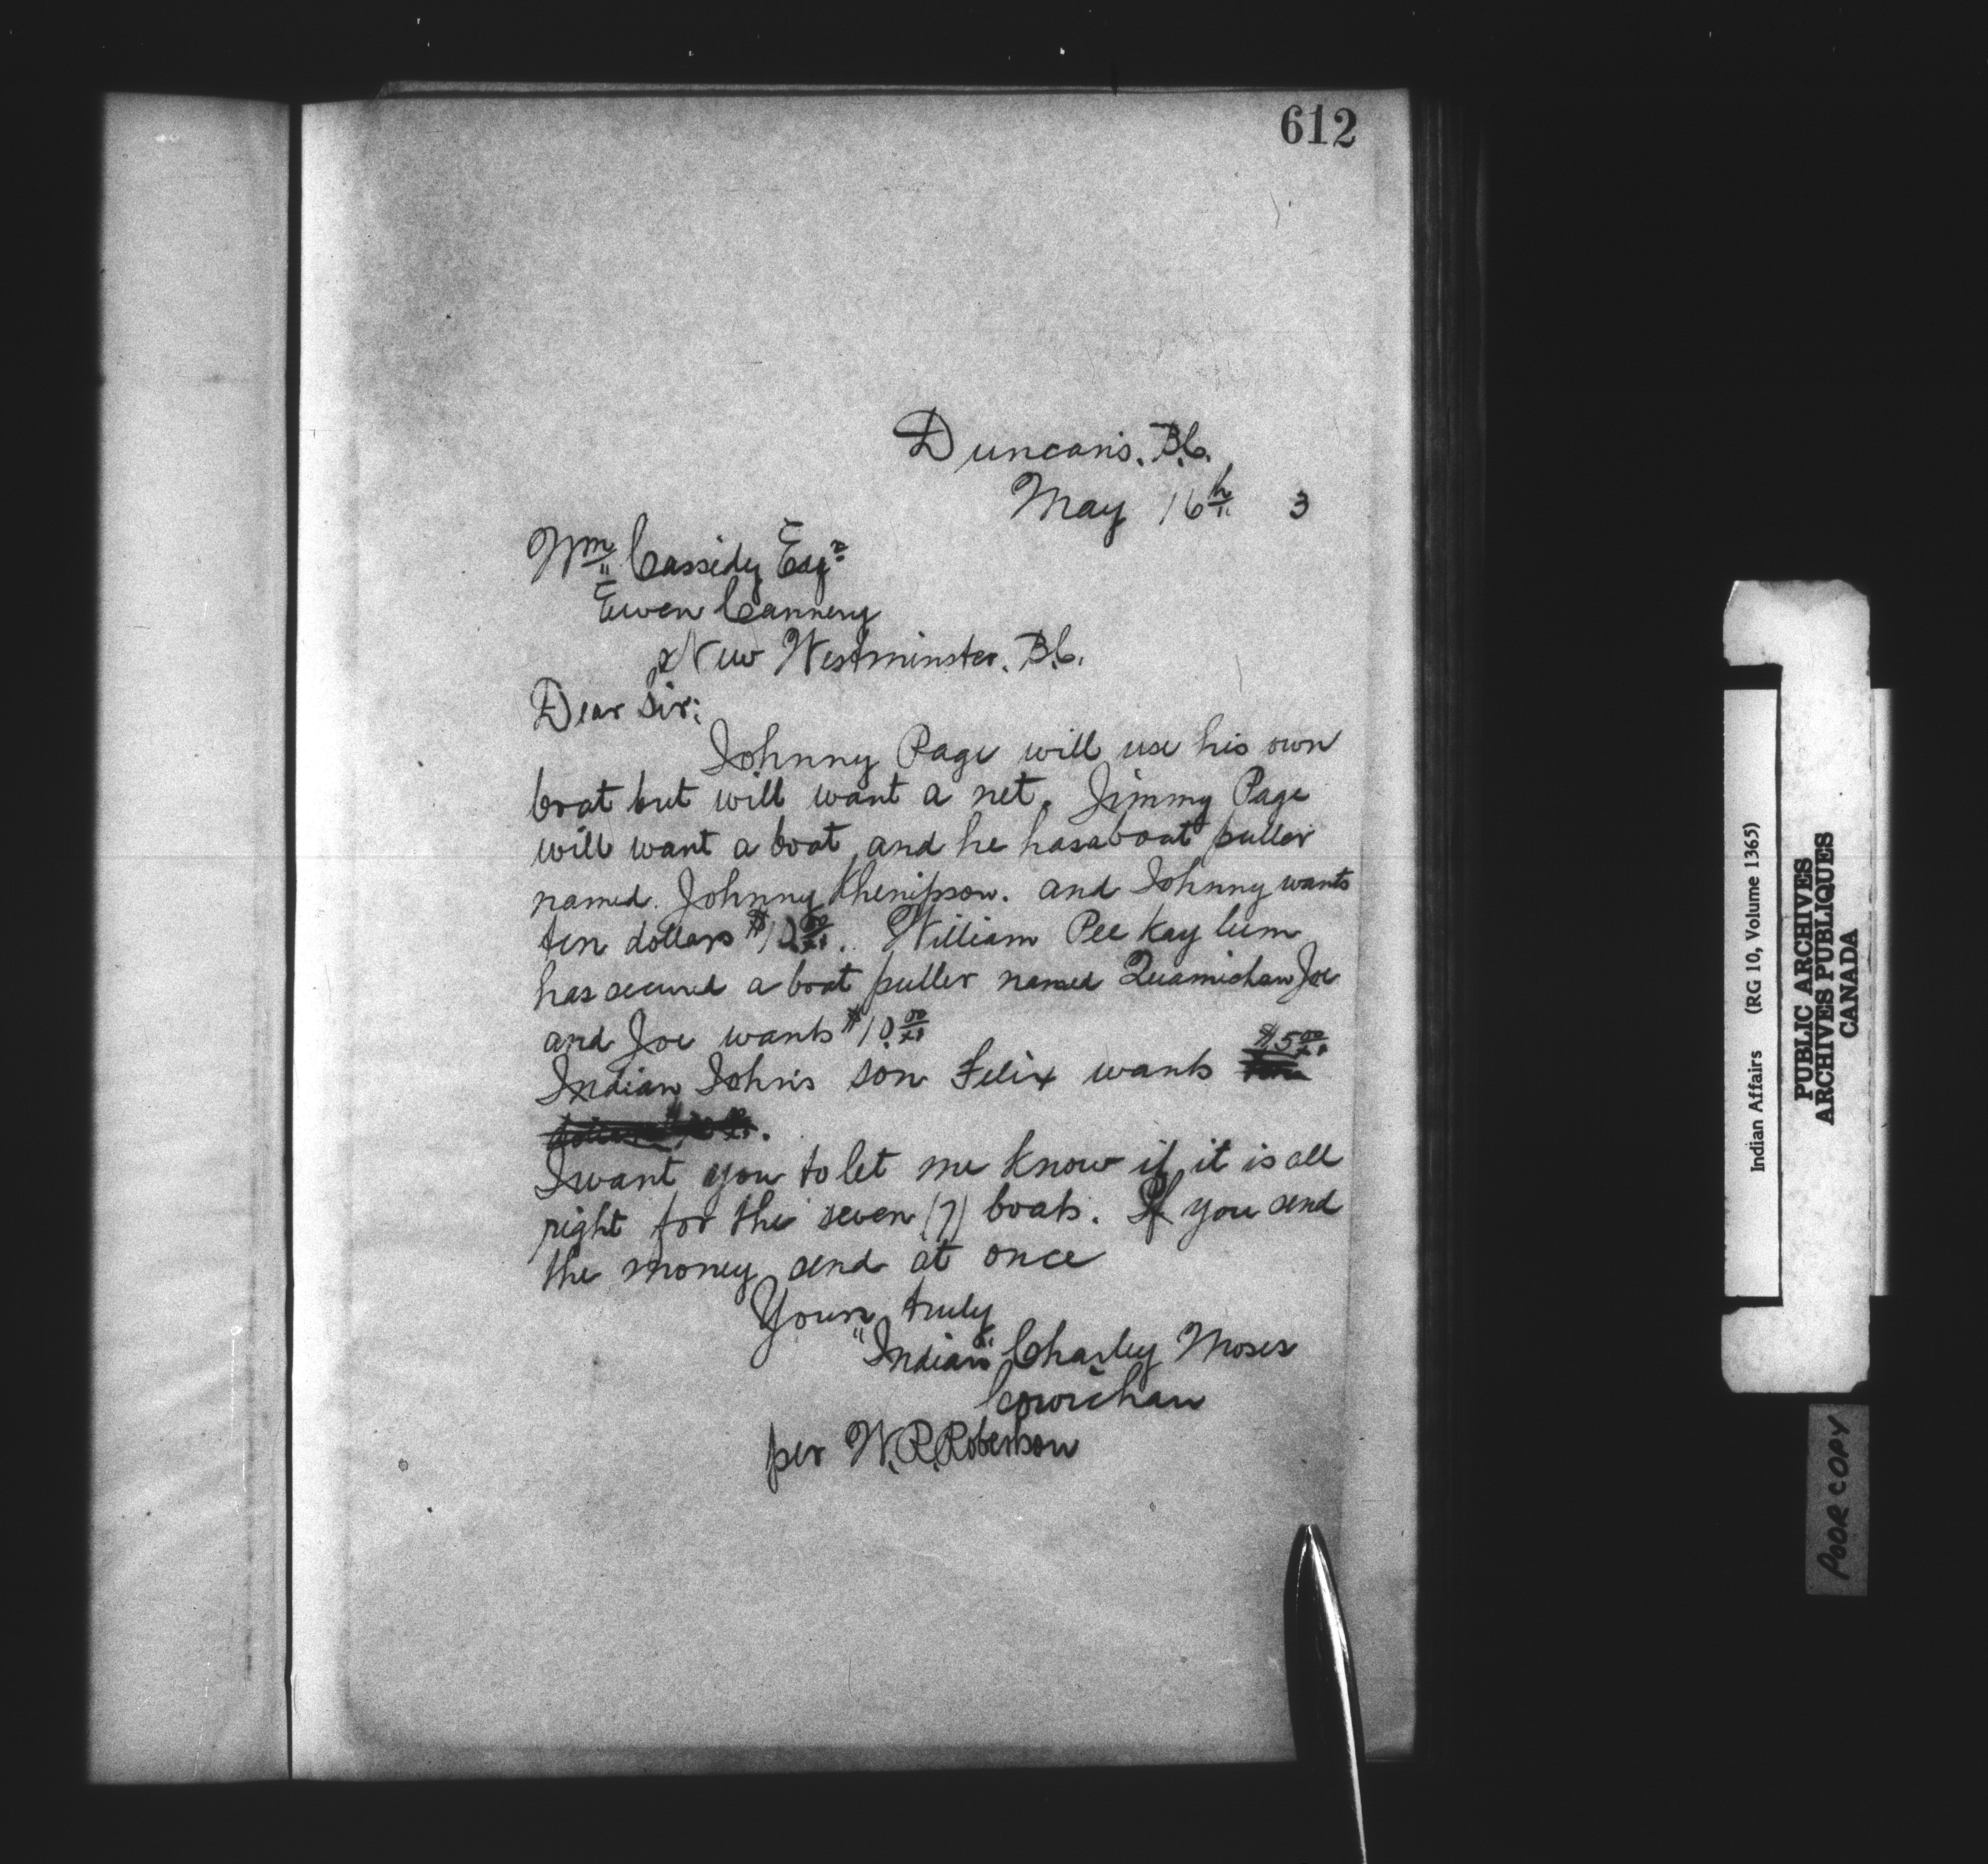 612
Duncan's. B.C.
May 16th 3
Wm Cassidy Esqr
Ewen Cannery
New Westminster. B.C.
Dear Sir:
Johnny Page will use his own
boat but will want a net. Jimmy Page
will want a boat, and he has a boat puller
named. Johnny and Johnny wants
ten dollars $10.00. William Pee Kay lum
has secured a boat puller named Quamichan Joe
and Joe wants $10.00
Indian John's son Felix wants $5.00
I want you to let me know if it is all
right for the seven (7) boats. If you send
the money send at once
Yours truly
"Indian" Charley Moses
Cowichan
per W. R. Robertson
Indian Affairs (RG 10, Volume 1365)
PUBLIC ARCHIVES
ARCHIVES PUBLIQUES
CANADA
POOR COPY